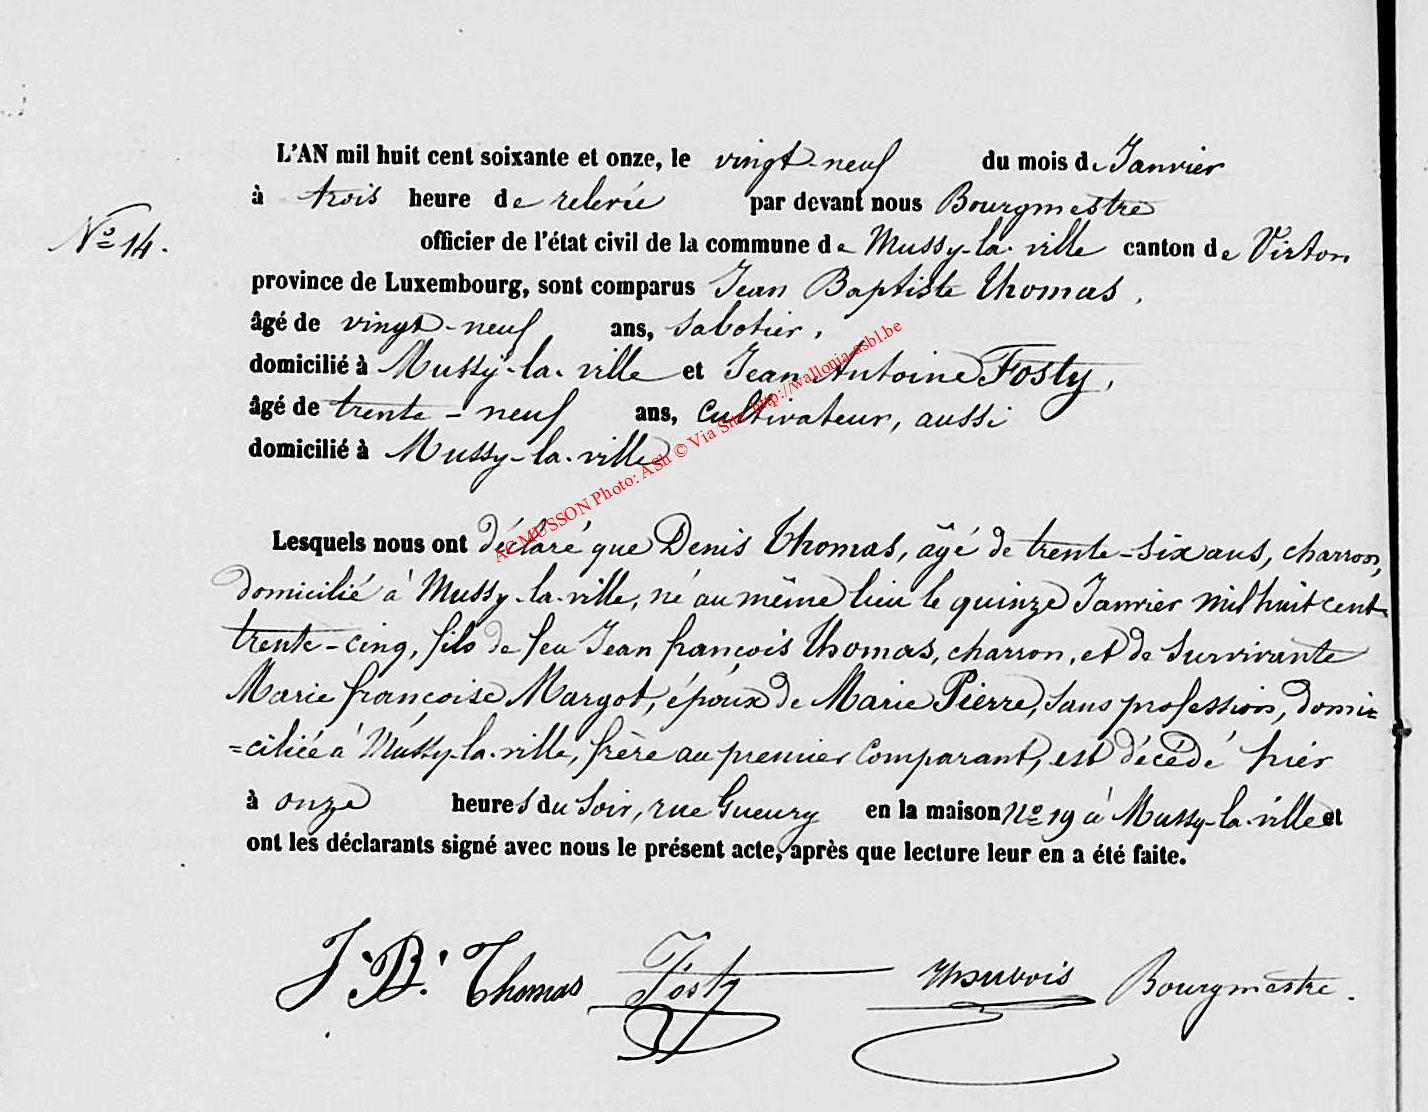 L'AN mil huit cent soixante et onze, le vingt-neuf du mois de Janvier
à trois heure de relevée par devant nous Bourgmestre
N° 14.
officier de l'état civil de la commune de Mussy-la-ville canton de Virton
province de Luxembourg, sont comparus Jean Baptiste Thomas,
âgé de vingt-neuf ans, sabotier,
domicilié à Mussy-la-ville et Jean Antoine Fosty,
âgé de trente-neuf ans, cultivateur, aussi
domicilié à Mussy-la-ville
AC MUSSON Photo: ASh © Via Site http://wallonia-asbl.be
Lesquels nous ont déclaré que Denis Thomas, âgé de trente-six ans, charron,
domicilié à Mussy-la-ville, né au même lieu le quinze Janvier mil huit cent
trente-cinq, fils de feu Jean françois Thomas, charron, et de Survivante
Marie françoise Margot, époux de Marie Pierre, sans profession, domi=
=ciliée à Mussy-la-ville, frère au premier comparant, est décédé hier
à onze heures du soir, rue Gueury en la maison N° 19 à Mussy-la-ville et
ont les déclarants signé avec nous le présent acte, après que lecture leur en a été faite.
J. B. Thomas Fosty Dubois Bourgmestre.